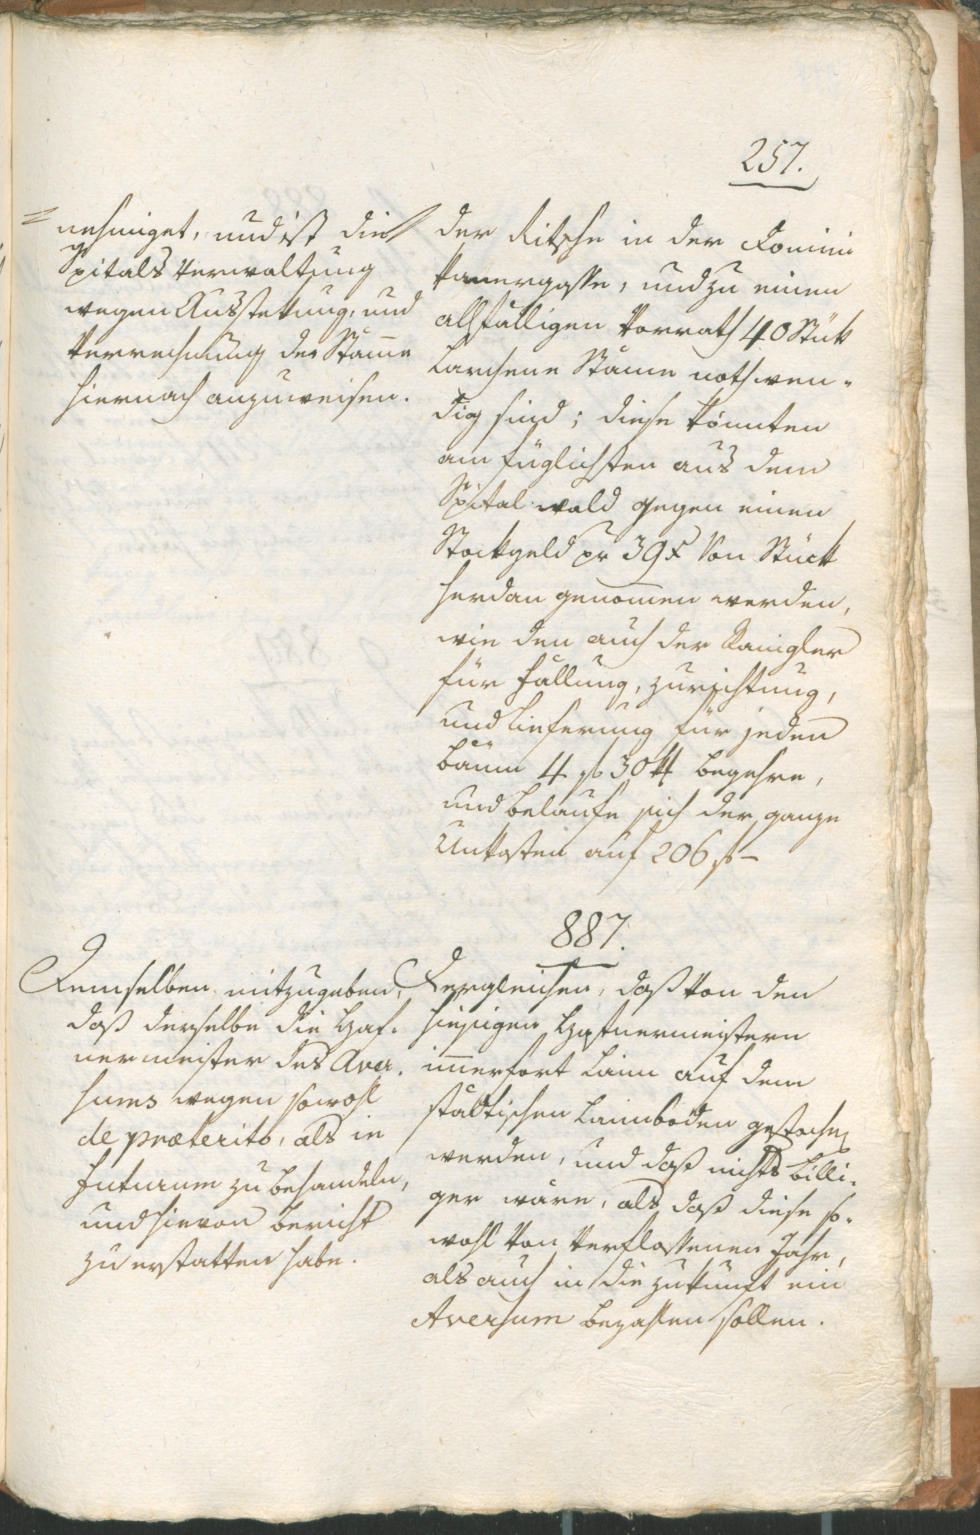 257.
= nehmiget, und ist die
Spitals Verwaltung
wegen Ausstekung, und
Verrechnung der Stäme
hiernach anzuweisen.
der Ritsche in der Domini
kanergasse, und zu einen
allfälligen Vorrath 40 Stük
Larchene Stäme nothwen-
dig sind; diese könnten
am füglichsten aus dem
Spital wald gegen einen
Stockgeld pr 39 x Von Stück
herdan genomen werden,
wie den auch der
für Fällung, Zurichtung,
und Lieferung für jeden
Baum 4 f 30 begehre,
und belaufe sich der ganze
Unkosten auf 206 f –
887.
Demselben mitzugeben,
daß derselbe die Haf-
nermeister des Aver-
sums wegen sowohl
de præterito, als in
futurum zu behandeln,
und hievon Bericht
zu erstatten habe.
Dergleichen, daß von den
hiesigen Hafnermeistern
imerfort Laim auf dem
städtischen Laimboden gestochen
werden, und daß nichts billi-
ger wäre, als daß diese so-
wohl Von Verflossenen Jahr,
als auch in die Zukunft ein
Aversum bezahlen sollen.